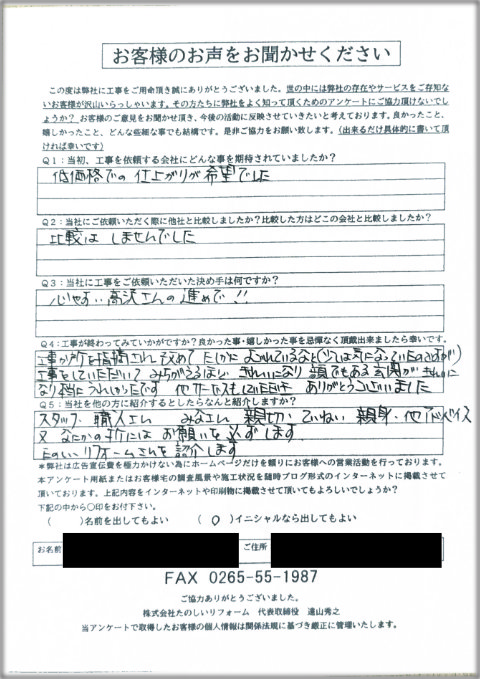 お客様のお声をお聞かせください
この度は弊社に工事をご用命頂き誠にありがとうございました。世の中には弊社の存在やサービスをご存知
ないお客様が沢山いらっしゃいます。その方たちに弊社をよく知って頂くためのアンケートにご協力頂けないでし
ょうか？ お客様のご意見をお聞かせ頂き、今後の活動に反映させていきたいと考えております。良かったこと、
嬉しかったこと、どんな些細な事でも結構です。是非ご協力をお願い致します。（出来るだけ具体的に書いて頂
ければ幸いです）
Q1：当初、工事を依頼する会社にどんな事を期待されていましたか？
低価格での 仕上がりが希望でした
Q2：当社にご依頼いただく際に他社と比較しましたか？比較した方はどこの会社と比較しましたか？
比較は しませんでした
Q3：当社に工事をご依頼いただいた決め手は何ですか？
心やすい高沢さんの進めで!!
Q4：工事が終わってみていかがですか？良かった事・嬉しかった事を忌憚なく頂戴出来ましたら幸いです。
工事をしていただいて みちがえるほど きれいになり 顔でもある玄関がきれいに
ありがとうございました
Q5：当社を他の方に紹介するとしたらなんと紹介しますか？
スタッフ 職人さん みなさん 親切 ていねい 親身 他アドバイス
又 なにかの折には お願いを必ずします
たのしいリフォームさんを紹介します
＊弊社は広告宣伝費を極力かけない為にホームページだけを頼りにお客様への営業活動を行っております。
本アンケート用紙またはお客様宅の調査風景や施工状況を随時ブログ形式のインターネットに掲載させて
頂いております。上記内容をインターネットや印刷物に掲載させて頂いてもよろしいでしょうか？
下記の中から○印をお付下さい。
（　　）名前を出してもよい　　（ ○ ）イニシャルなら出してもよい
お名前　　ご住所
FAX 0265-55-1987
ご協力ありがとうございました。
株式会社たのしいリフォーム　代表取締役　遠山秀之
当アンケートで取得したお客様の個人情報は関係法規に基づき厳正に管理いたします。